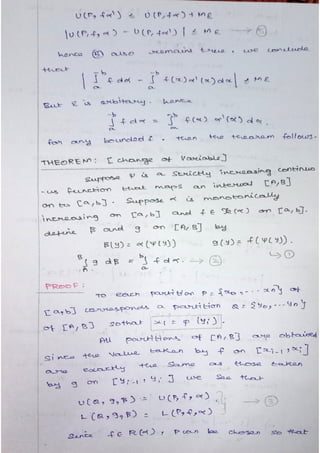 U(P, fα') ≤ U(P, fα) + Mε
|U(P, f, α) - U(P, fα')| ≤ Mε → ⑤
hence ⑤ also remains true. we conclude
that
| ∫̄ₐᵇ f dα - ∫̄ₐᵇ f(x) α'(x) dx | ≤ Mε
But ε is arbitary. hence
∫̄ₐᵇ f dα = ∫̄ₐᵇ f(x) α'(x) dx.
for any bounded f. Then the theorem follows.
THEOREM: [change of Variable]
Suppose φ is a Strictly increasing continuo
-us function that maps an interval [A,B]
on to [a,b]. Suppose α is monotonically
increasing on [a,b] and f ∈ R(α) on [a,b].
define β and g on [A,B] by
β(y) = α(φ(y)) g(y) = f(φ(y)).
→ ①
∫_A^B g dβ = ∫ₐᵇ f dα. → ②
PROOF:
To each partition P = {x₀, ... xn} of
[a,b] corresponds a partition Q = {y₀, ... yn}
of [A,B] so that xi = φ(yi).
All partitions of [A,B] are obtained
since the value taken by f on [xi-1, xi]
are exactly the same as those taken
by g on [yi-1, yi] we see that
U(Q, g, β) = U(P, f, α)
L(Q, g, β) = L(P, f, α) → ③
Since f ∈ R(α), P can be chosen so that